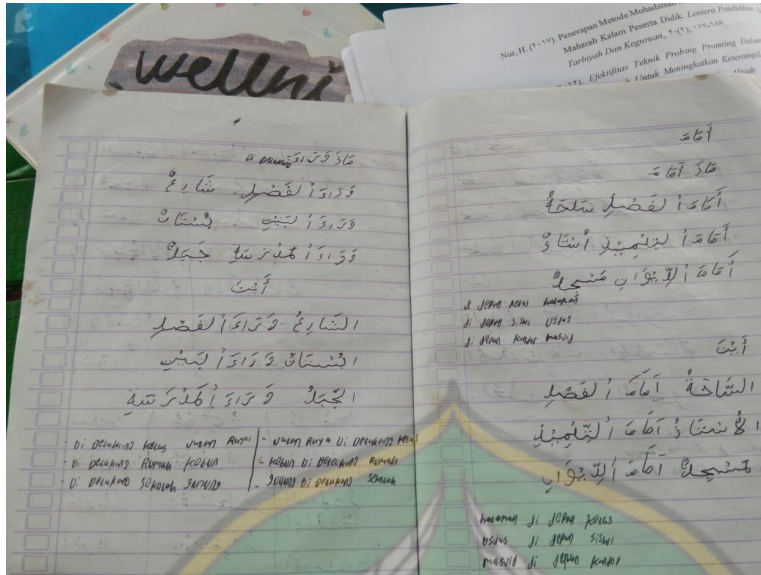 wellni
Nur, H. (٢٠١٧). Penerapan Metode Muhadatsah
Maharah Kalam Peserta Didik. Lentera Pendidikan
Tarbiyah Dan Keguruan, ٢٠(٢), ١٧٧-١٨٧.
Efektifitas Teknik Probing Promting Dalam
Untuk Meningkatkan Keterampil
مَاذَ وَرَاءَ
وَرَاءَ الفَصْلِ شَارِعٌ
وَرَاءَ البَيْتِ بُسْتَانٌ
وَرَاءَ المَدْرَسَةِ جَبَلٌ
أَيْنَ
الشَّارِعُ وَرَاءَ الفَصْلِ
البُسْتَانُ وَرَاءَ البَيْتِ
الجَبَلُ وَرَاءَ المَدْرَسَةِ
- Di belakang kelas jalan Raya
- Di belakang Rumah kebun
- Di belakang sekolah gunung
- Jalan Raya Di belakang kelas
- kebun Di belakang Rumah
- gunung Di belakang sekolah
أَمَامَ
مَاذَ أَمَامَ
أَمَامَ الفَصْلِ سَاحَةٌ
أَمَامَ التِلْمِيْذِ أُسْتَاذٌ
أَمَامَ الدِّيْوَانِ مَسْجِدٌ
di depan kelas halaman
di depan siswi ustas
di depan kantor masjid
أَيْنَ
السَّاحَةُ أَمَامَ الفَصْلِ
الأُسْتَاذُ أَمَامَ التِّلْمِيْذِ
مَسْجِدٌ أَمَامَ الدِّيْوَانِ
halaman di depan kelas
ustas di depan siswi
masjid di depan kantor